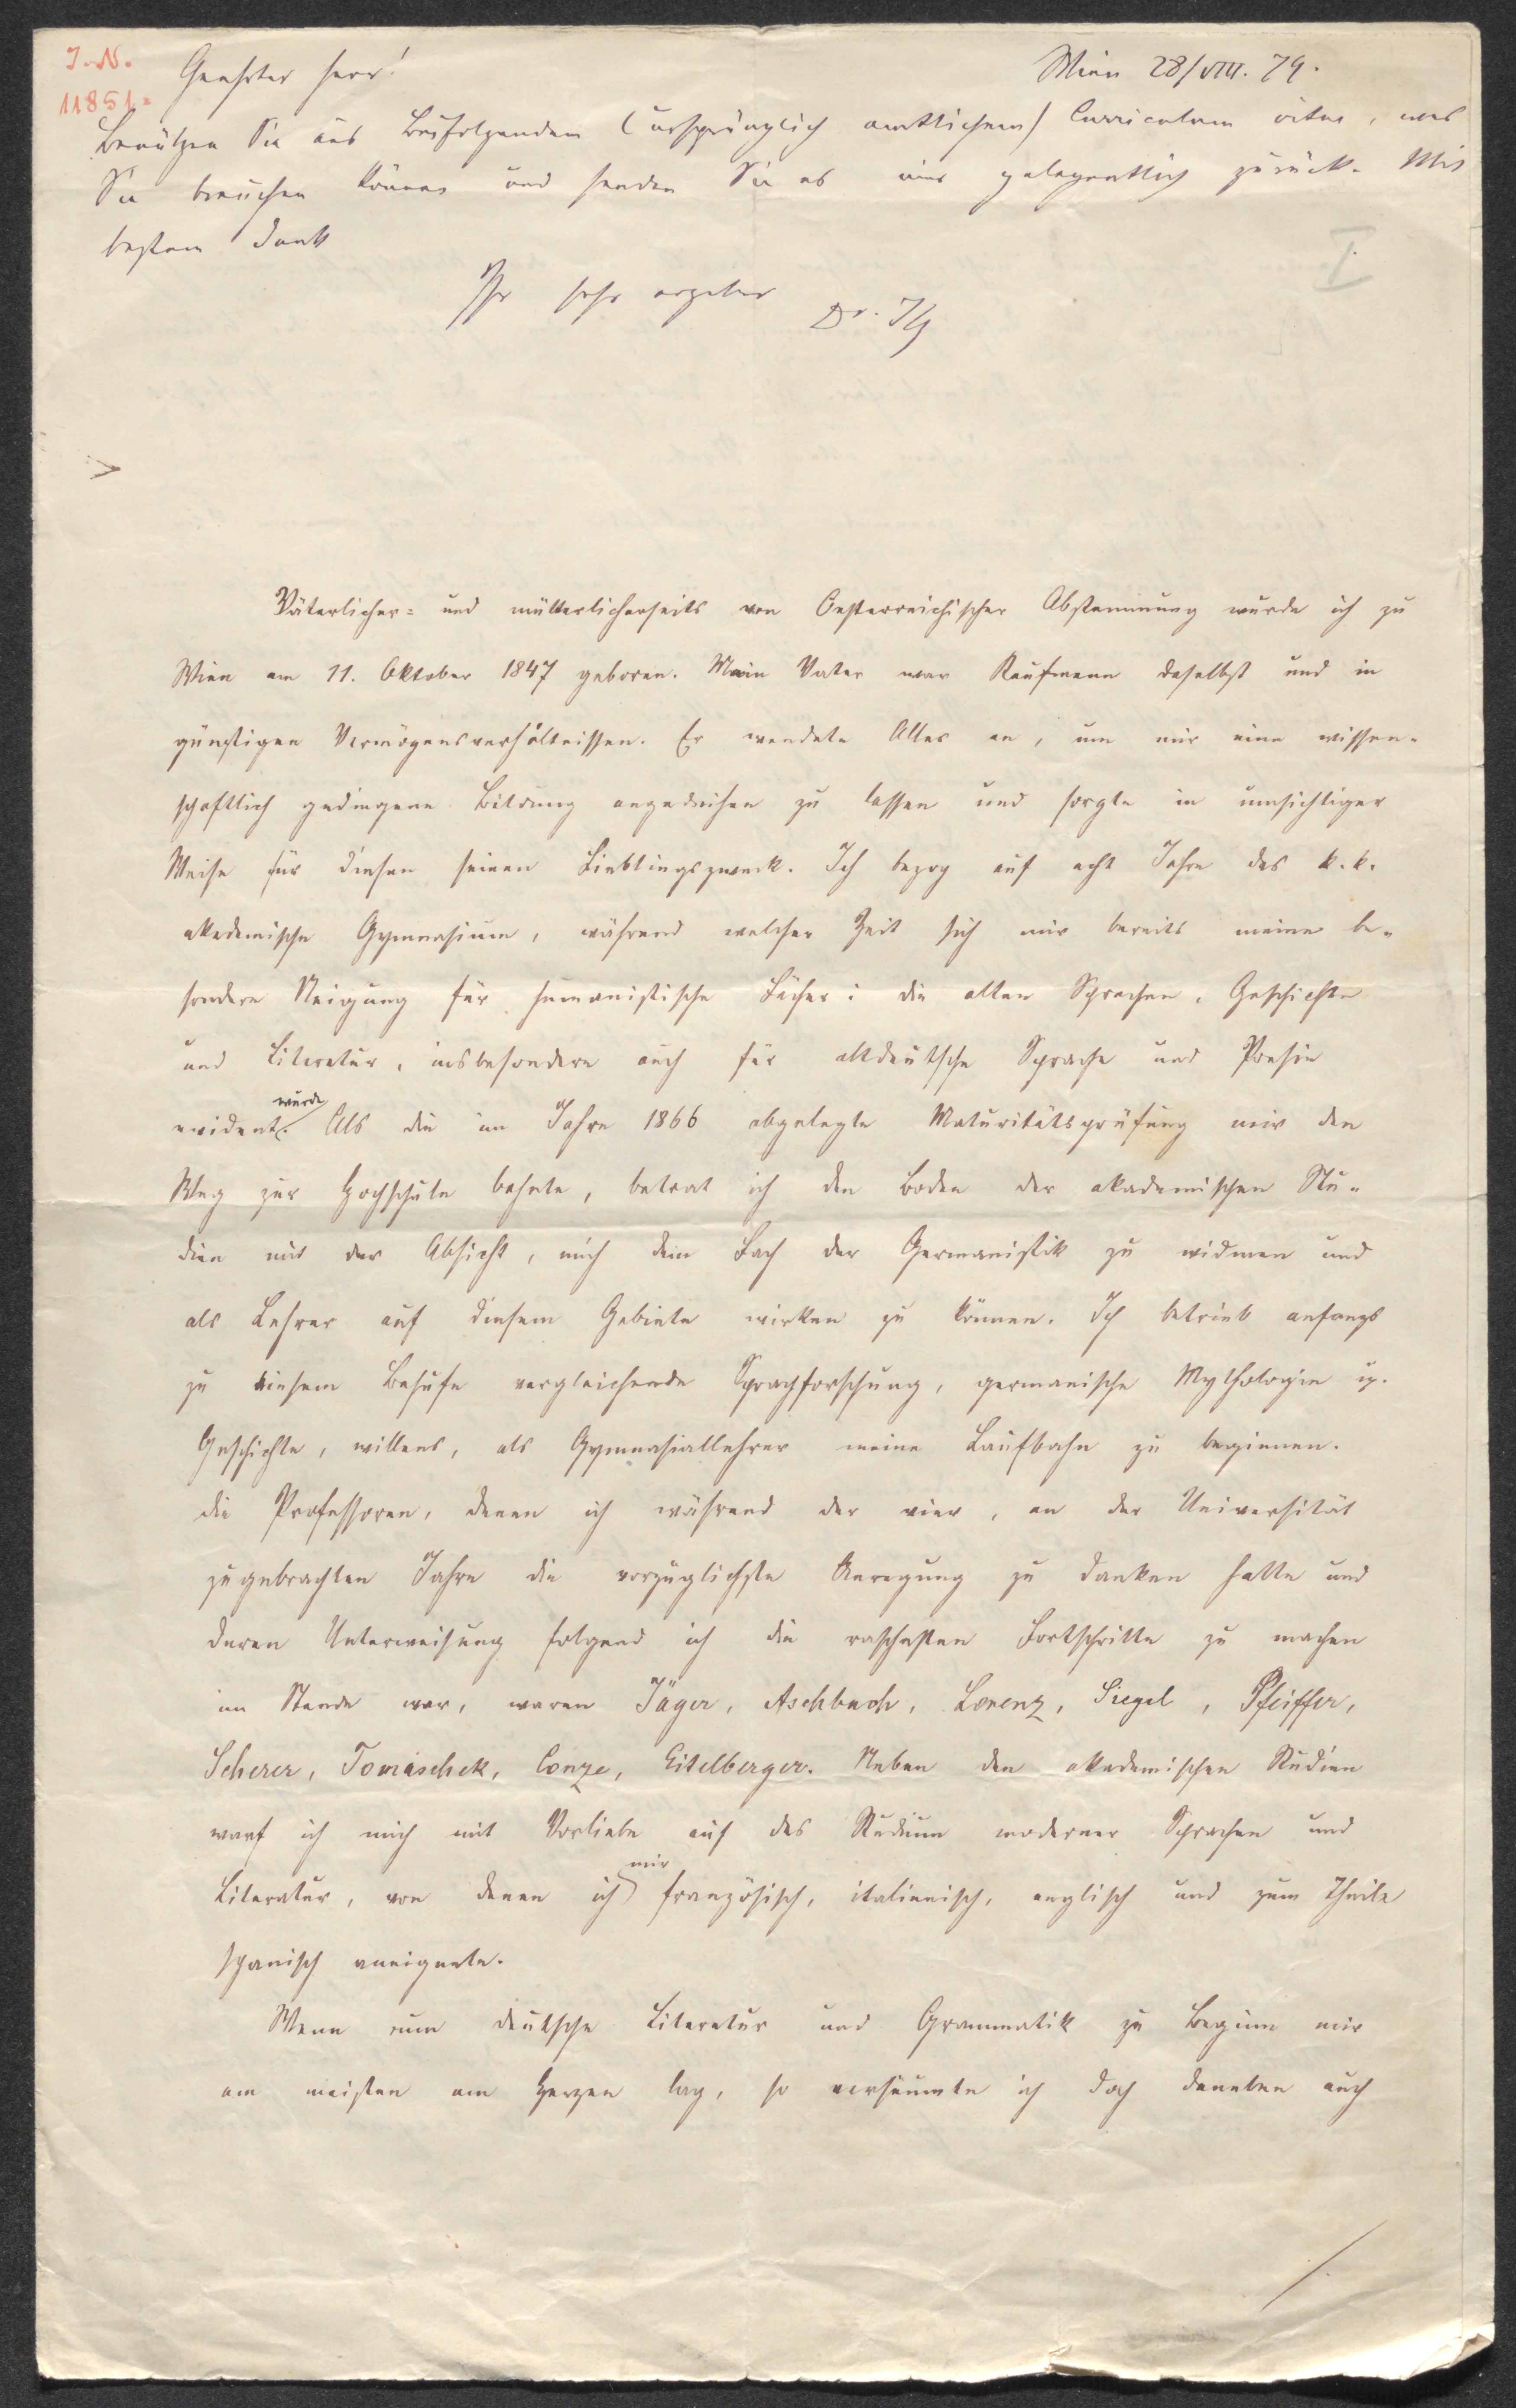 I.N.
11851.
Geehrter Herr!
Wien 28/VIII. 79.
Benützen Sie aus beifolgendem (ursprünglich amtlichem) Curriculum vitae, was
Sie brauchen können und senden Sie es mir gelegentlich zurück. Mit
bestem Dank
Ihr sehr ergebener
Dr. Ilg
I.
Väterlicher= und mütterlicherseits von Oesterreichischer Abstammung wurde ich zu
Wien am 11. Oktober 1847 geboren. Mein Vater war Kaufmann daselbst und in
günstigen Vermögensverhältnissen. Er wendete Alles an, um mir eine wissen-
schaftlich gediegene Bildung angedeihen zu lassen und sorgte in umsichtiger
Weise für diesen seinen Lieblingszweck. Ich bezog auf acht Jahre das k.k.
akademische Gymnasium, während welcher Zeit sich mir bereits meine be-
sondere Neigung für humanistische Fächer: die alten Sprachen, Geschichte
und Literatur, insbesondere auch für altdeutsche Sprache und Poesie
wurde
evident. Als die im Jahre 1866 abgelegte Maturitätsprüfung mir den
Weg zur Hochschule bahnte, betrat ich den Boden der akademischen Stu-
dien mit der Absicht, mich dem Fach der Germanistik zu widmen und
als Lehrer auf diesem Gebiete wirken zu können. Ich betrieb anfangs
zu diesem Behufe vergleichende Sprachforschung, germanische Mythologie u.
Geschichte, willens, als Gymnasiallehrer meine Laufbahn zu beginnen.
Die Professoren, denen ich während der vier, an der Universität
zugebrachten Jahre die vorzüglichste Anregung zu danken hatte und
deren Unterweisung folgend ich die raschesten Fortschritte zu machen
im Stande war, waren Jäger, Aschbach, Lorenz, Siegel, Pfeiffer,
Scherer, Tomaschek, Conze, Eitelberger. Neben den akademischen Studien
warf ich mich mit Vorliebe auf das Studium moderner Sprachen und
mir
Literatur, von denen ich französisch, italienisch, englisch und zum Theile
spanisch aneignete.
Wenn nun deutsche Literatur und Grammatik zu Beginn mir
am meisten am Herzen lag, so versäumte ich doch daneben auch